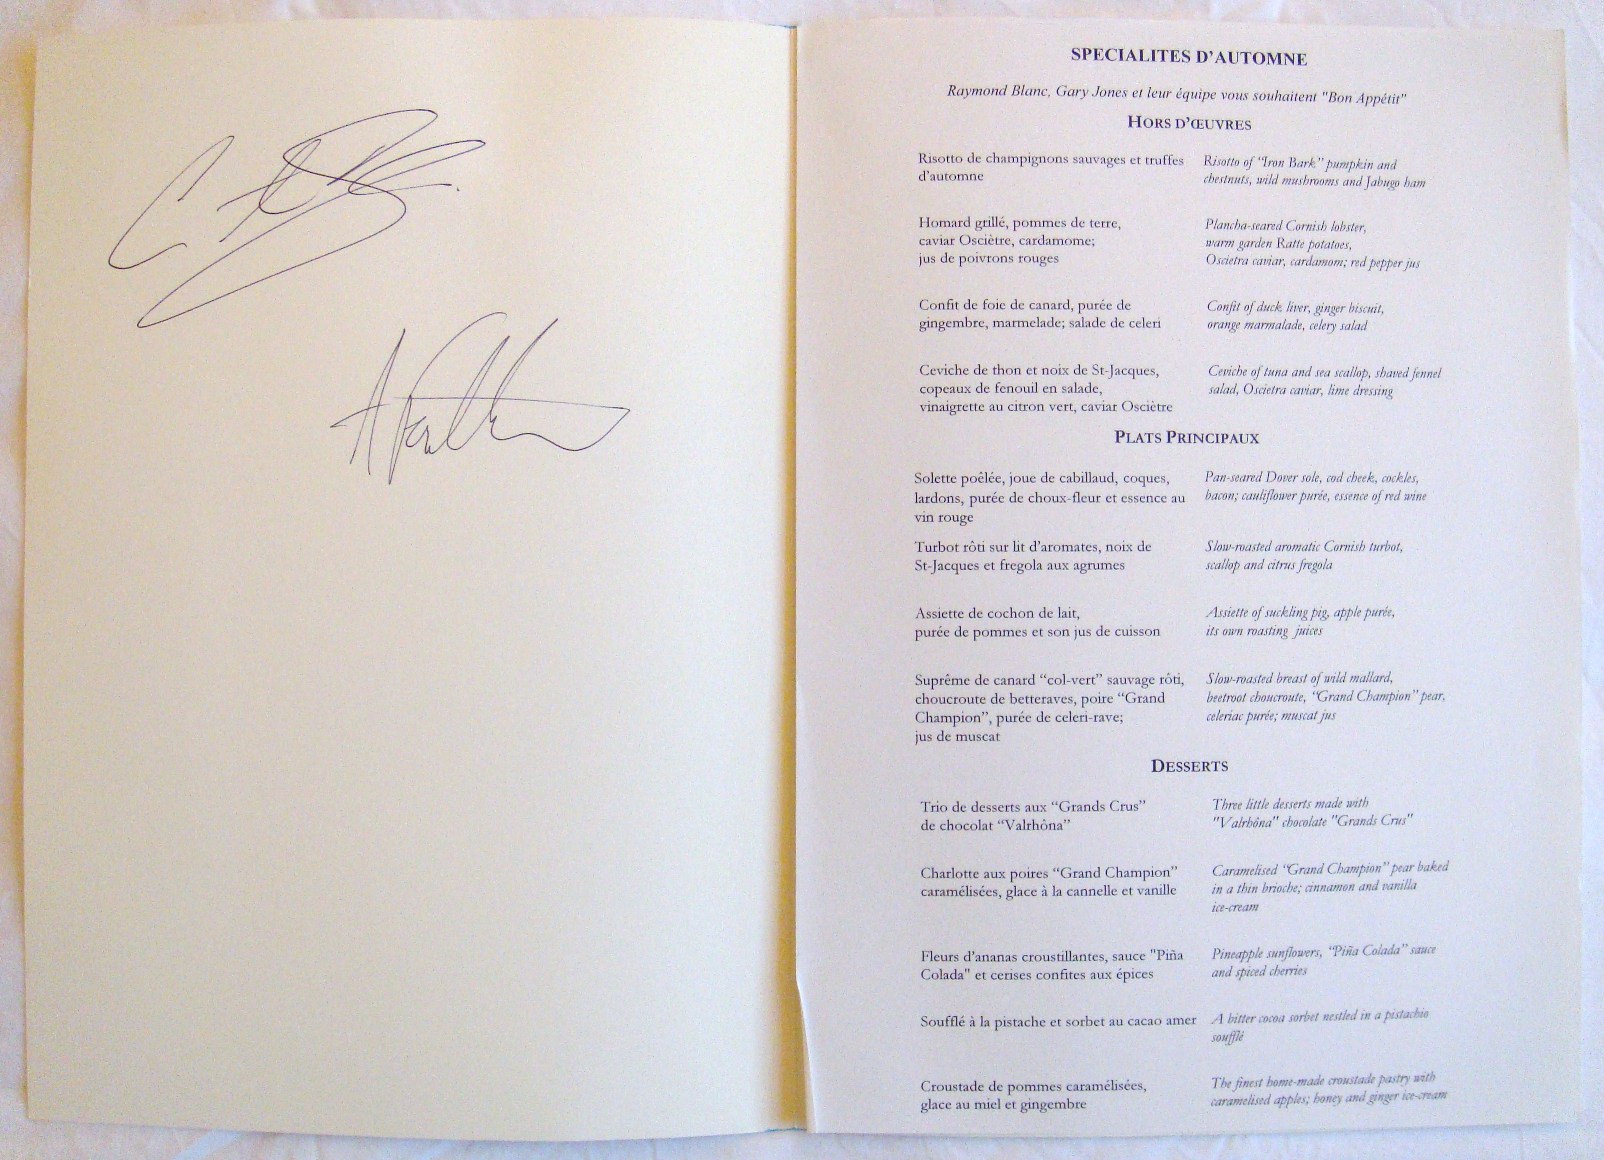 SPECIALITES D'AUTOMNE
Raymond Blanc, Gary Jones et leur équipe vous souhaitent "Bon Appétit"
HORS D'ŒUVRES
Risotto de champignons sauvages et truffes
d'automne
Risotto of "Iron Bark" pumpkin and
chestnuts, wild mushrooms and Jabugo ham
Homard grillé, pommes de terre,
caviar Osciètre, cardamome;
jus de poivrons rouges
Plancha-seared Cornish lobster,
warm garden Ratte potatoes,
Oscietra caviar, cardamom; red pepper jus
Confit de foie de canard, purée de
gingembre, marmelade; salade de celeri
Confit of duck liver, ginger biscuit,
orange marmalade, celery salad
Ceviche de thon et noix de St-Jacques,
copeaux de fenouil en salade,
vinaigrette au citron vert, caviar Osciètre
Ceviche of tuna and sea scallop, shaved fennel
salad, Oscietra caviar, lime dressing
PLATS PRINCIPAUX
Solette poêlée, joue de cabillaud, coques,
lardons, purée de choux-fleur et essence au
vin rouge
Pan-seared Dover sole, cod cheek, cockles,
bacon; cauliflower purée, essence of red wine
Turbot rôti sur lit d'aromates, noix de
St-Jacques et fregola aux agrumes
Slow-roasted aromatic Cornish turbot,
scallop and citrus fregola
Assiette de cochon de lait,
purée de pommes et son jus de cuisson
Assiette of suckling pig, apple purée,
its own roasting juices
Suprême de canard "col-vert" sauvage rôti,
choucroute de betteraves, poire "Grand
Champion", purée de celeri-rave;
jus de muscat
Slow-roasted breast of wild mallard,
beetroot choucroute, "Grand Champion" pear,
celeriac purée; muscat jus
DESSERTS
Trio de desserts aux "Grands Crus"
de chocolat "Valrhôna"
Three little desserts made with
"Valrhôna" chocolate "Grands Crus"
Charlotte aux poires "Grand Champion"
caramélisées, glace à la cannelle et vanille
Caramelised "Grand Champion" pear baked
in a thin brioche; cinnamon and vanilla
ice-cream
Fleurs d'ananas croustillantes, sauce "Piña
Colada" et cerises confites aux épices
Pineapple sunflowers, "Piña Colada" sauce
and spiced cherries
Soufflé à la pistache et sorbet au cacao amer
A bitter cocoa sorbet nestled in a pistachio
soufflé
Croustade de pommes caramélisées,
glace au miel et gingembre
The finest home-made croustade pastry with
caramelised apples; honey and ginger ice-cream